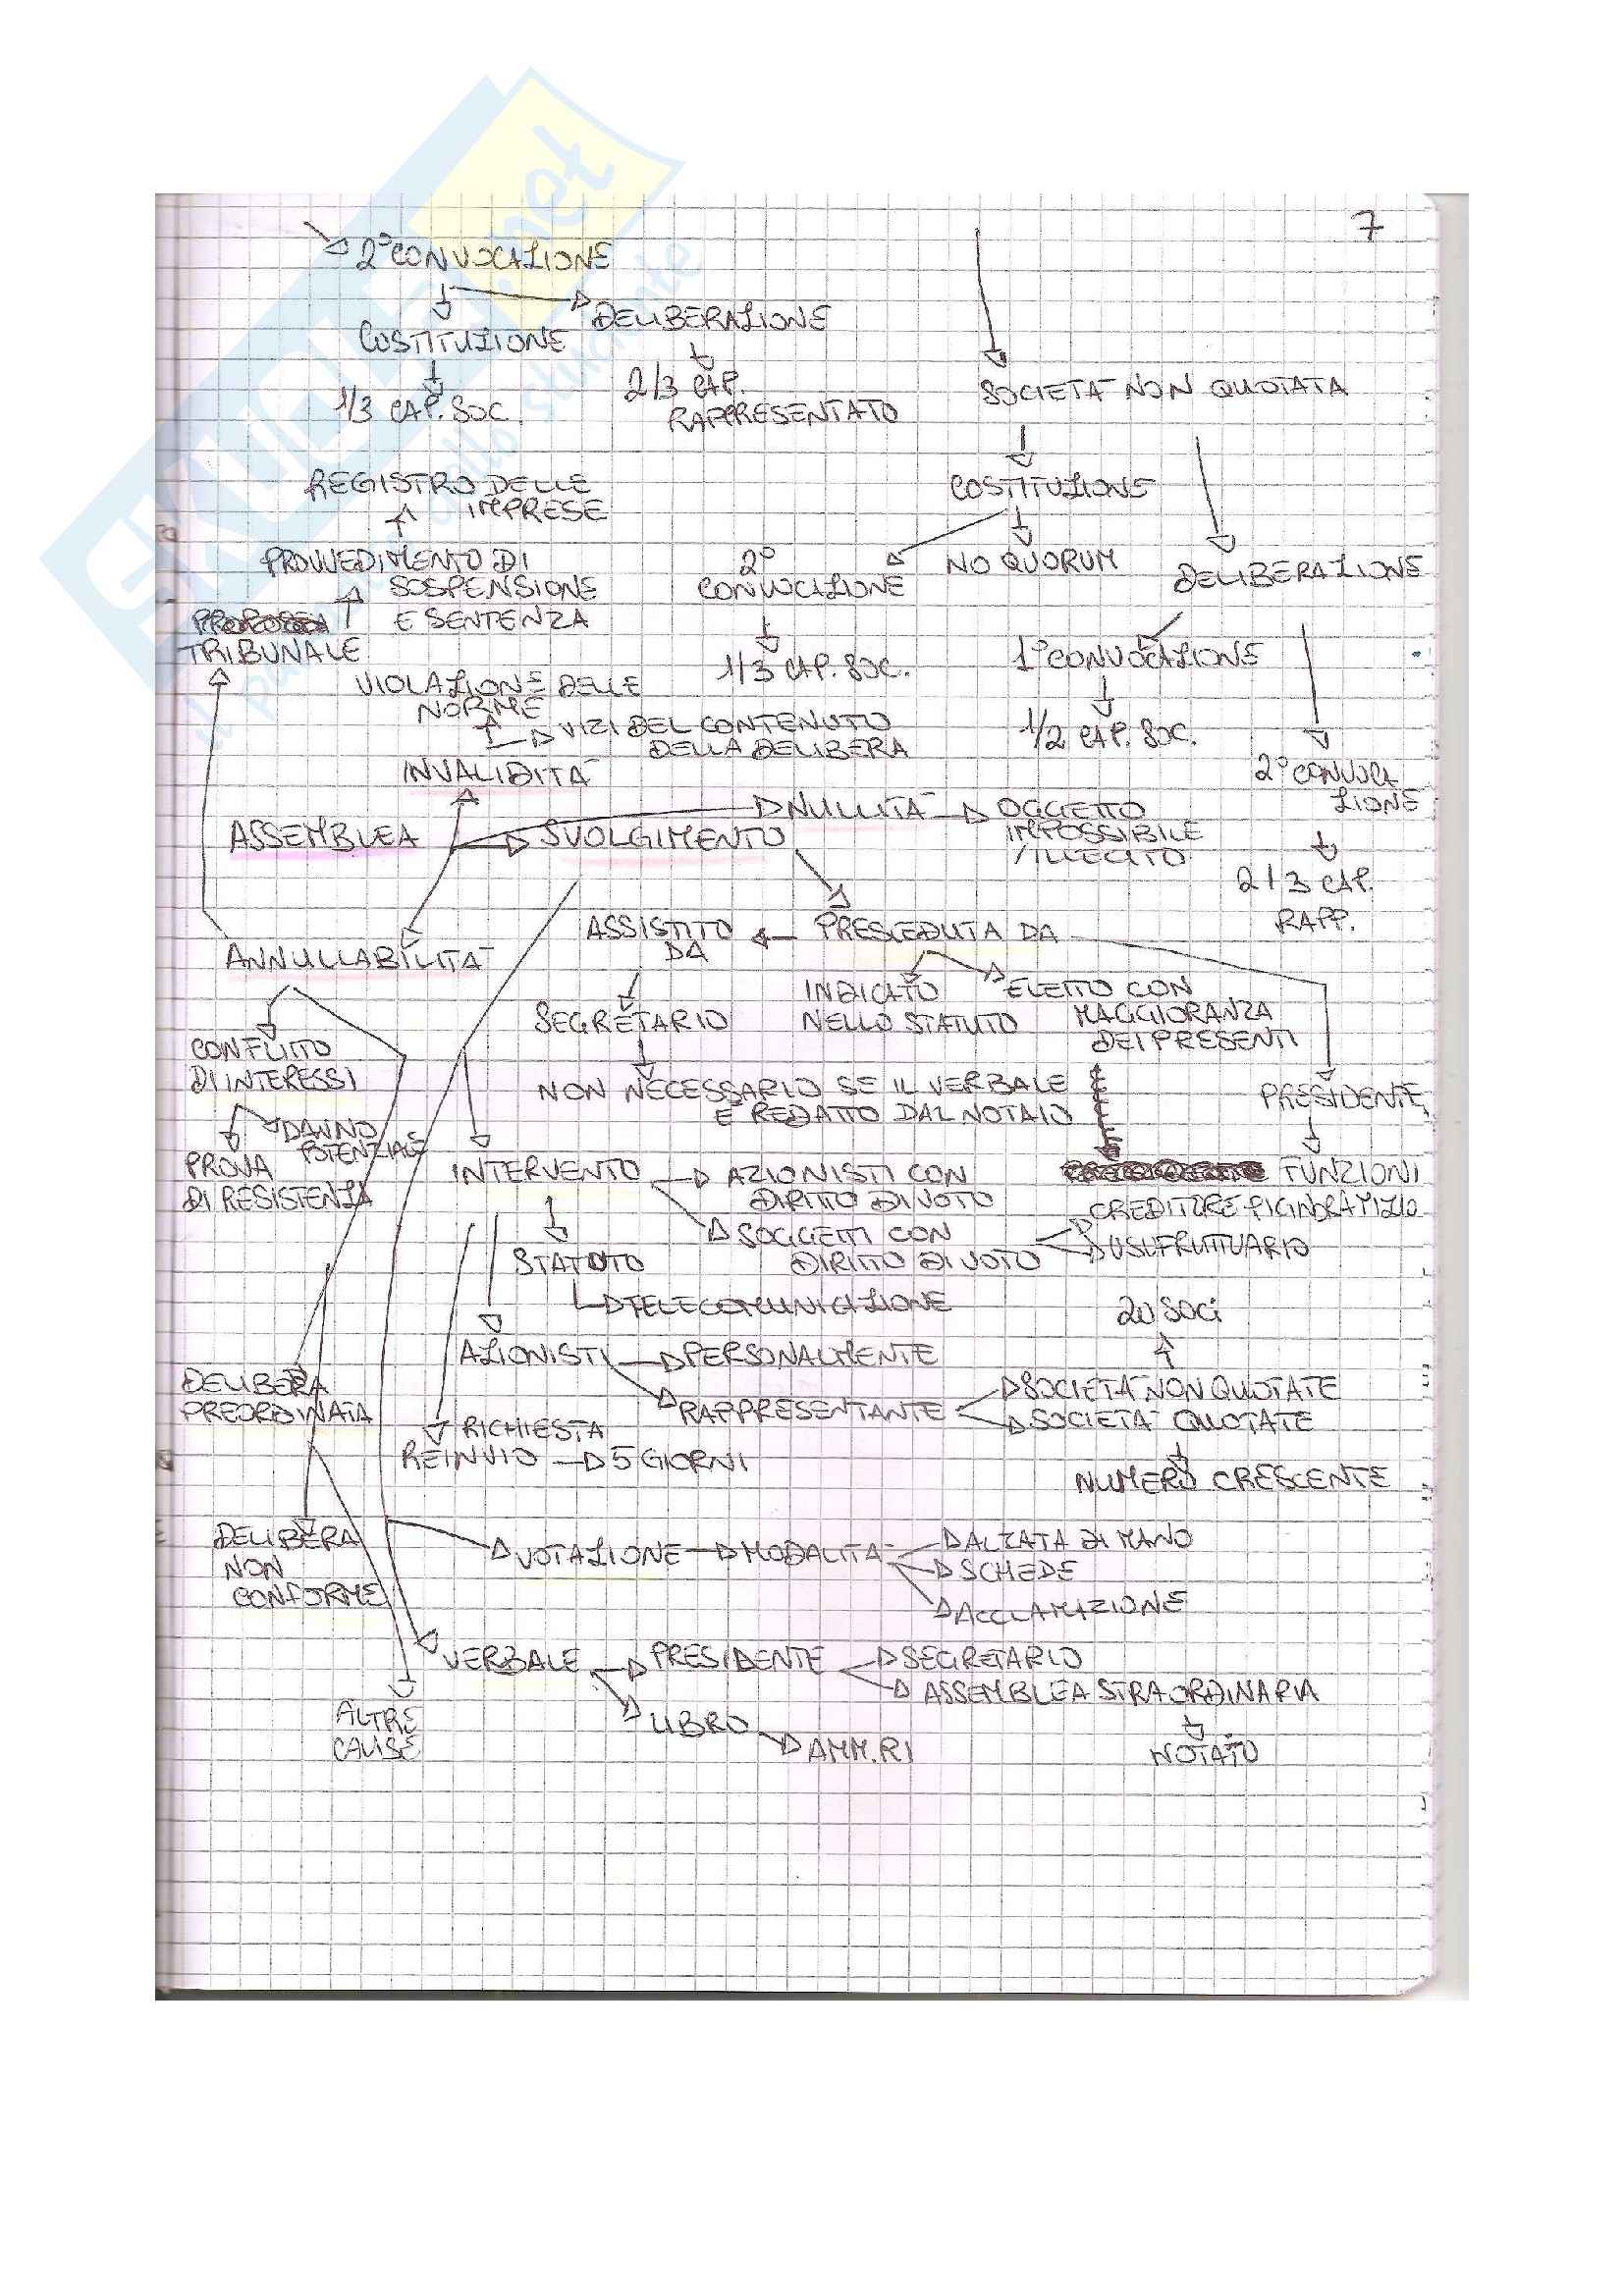 7
2° CONVOCAZIONE
DELIBERAZIONE
COSTITUZIONE
1/3 CAP. SOC.
2/3 CAP.
RAPPRESENTATO
SOCIETÀ NON QUOTATA
COSTITUZIONE
REGISTRO DELLE
IMPRESE
PROVVEDIMENTO DI
SOSPENSIONE
E SENTENZA
TRIBUNALE
2°
CONVOCAZIONE
NO QUORUM
DELIBERAZIONE
1/3 CAP. SOC.
1° CONVOCAZIONE
1/2 CAP. SOC.
2° CONVOCA
ZIONE
2/3 CAP.
RAPP.
VIOLAZIONE DELLE
NORME
VIZI DEL CONTENUTO
DELLA DELIBERA
INVALIDITÀ
NULLITÀ
OGGETTO
IMPOSSIBILE
/ILLECITO
ASSEMBLEA
SVOLGIMENTO
ASSISTITO
DA
PRESCEDUTA DA
ANNULLABILITÀ
SEGRETARIO
INDICATO
NELLO STATUTO
ELETTO CON
MAGGIORANZA
DEI PRESENTI
CONFLITTO
DI INTERESSI
NON NECESSARIO SE IL VERBALE
È REDATTO DAL NOTAIO
PRESIDENTE
DANNO
POTENZIALE
PROVA
DI RESISTENZA
INTERVENTO
AZIONISTI CON
DIRITTO DI VOTO
FUNZIONI
CREDITORE PIGNORATIZIO
SOGGETTI CON
DIRITTO DI VOTO
USUFRUTTUARIO
STATUTO
TELECOMUNICAZIONE
20 SOCI
AZIONISTI
PERSONALMENTE
DELIBERA
PREORDINATA
RAPPRESENTANTE
SOCIETÀ NON QUOTATE
SOCIETÀ QUOTATE
RICHIESTA
REINVIO
5 GIORNI
NUMERO CRESCENTE
DELIBERA
NON
CONFORME
VOTAZIONE
MODALITÀ
ALZATA DI MANO
SCHEDE
ACCLAMAZIONE
VERBALE
PRESIDENTE
SEGRETARIO
ASSEMBLEA STRAORDINARIA
LIBRO
ALTRE
CAUSE
AMM.RI
NOTAIO